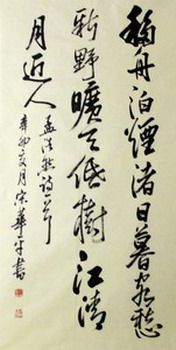 移舟泊煙渚日暮客愁
新野曠天低樹江清
月近人
孟浩然詩一首
辛卯夏月宋華平書